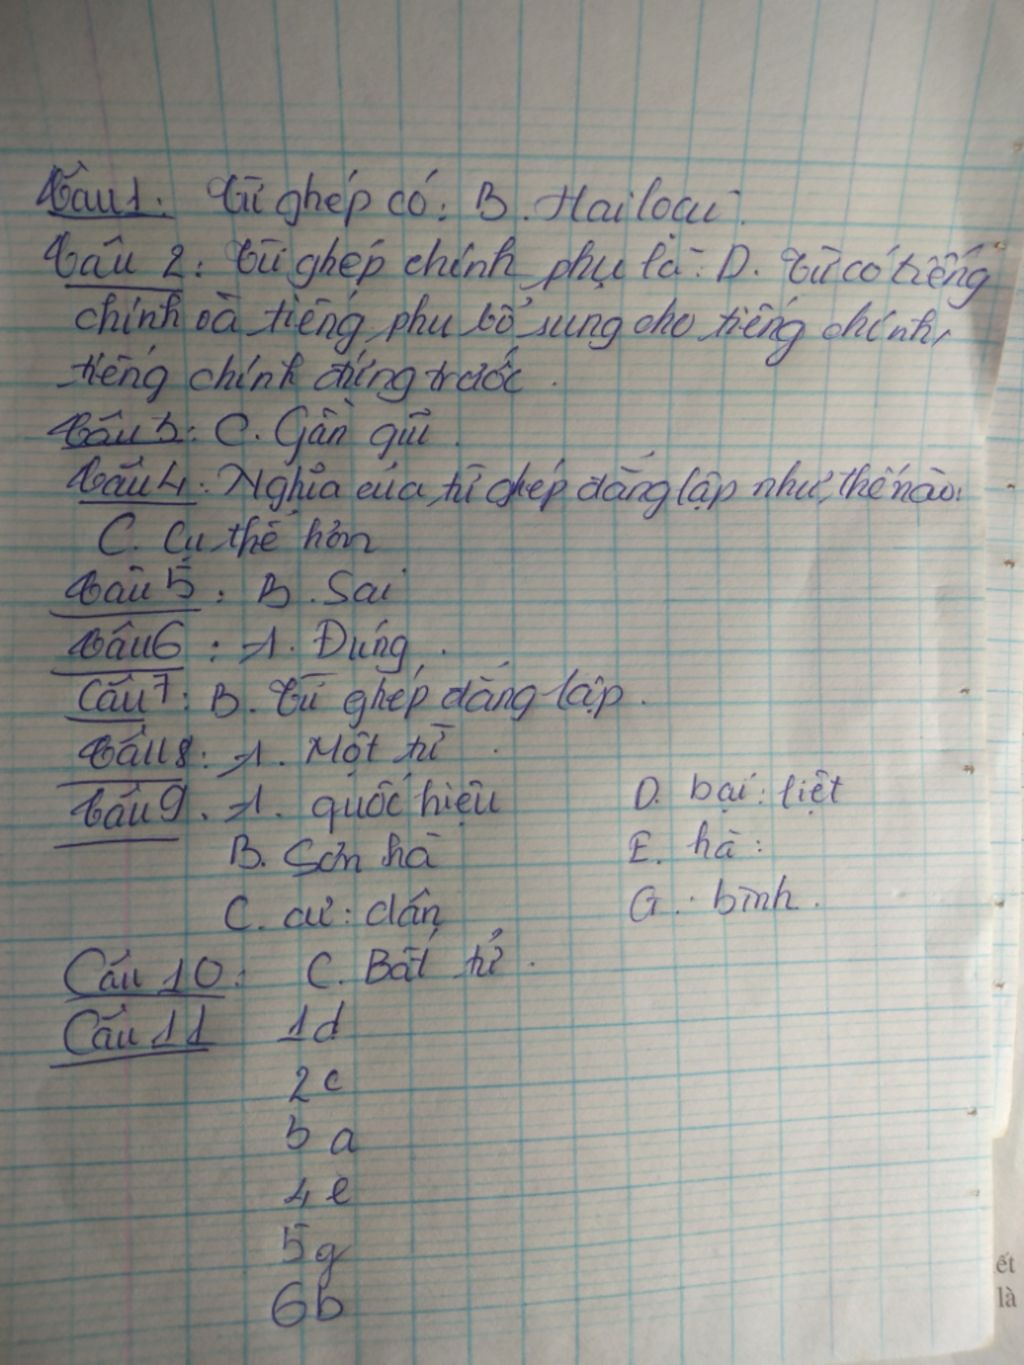 Câu 1: Từ ghép có: B. Hai loại.
Câu 2: Từ ghép chính phụ là: D. Từ có tiếng
chính và tiếng phụ bổ sung cho tiếng chính,
tiếng chính đứng trước.
Câu 3: C. Gần gũi.
Câu 4: Nghĩa của từ ghép đẳng lập như thế nào:
C. Cụ thể hơn
Câu 5: B. Sai
Câu 6: A. Đúng.
Câu 7: B. Từ ghép đẳng lập.
Câu 8: A. Một từ.
Câu 9. A. quốc hiệu D. bại: liệt
B. Sơn hà E. hà:
C. cư: dân G.: bình.
Câu 10: C. Bất tử.
Câu 11 1d
2c
3a
4e
5g
6b
ết
là